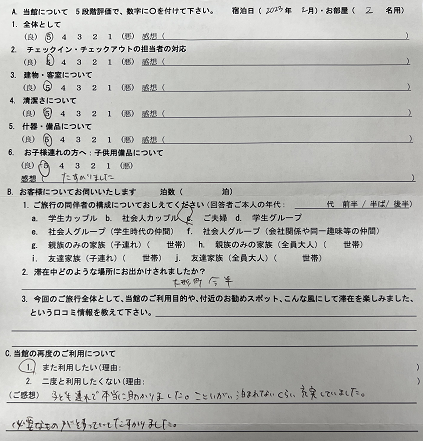 A. 当館について 5段階評価で、数字に○を付けて下さい。 宿泊日(2023年 2月)・お部屋( 2 名用)
1. 全体として
(良) 5 4 3 2 1 (悪) 感想( )
2. チェックイン・チェックアウトの担当者の対応
(良) 5 4 3 2 1 (悪) 感想( )
3. 建物・客室について
(良) 5 4 3 2 1 (悪) 感想( )
4. 清潔さについて
(良) 5 4 3 2 1 (悪) 感想( )
5. 什器・備品について
(良) 5 4 3 2 1 (悪) 感想( )
6. お子様連れの方へ:子供用備品について
(良) 5 4 3 2 1 (悪)
感想( たすかりました )
B. お客様についてお伺いいたします 泊数( 泊)
1. ご旅行の同伴者の構成についておしえてください(回答者ご本人の年代: 代 前半 / 半ば/ 後半)
a. 学生カップル b. 社会人カップル c. ご夫婦 d. 学生グループ
e. 社会人グループ(学生時代の仲間) f. 社会人グループ(会社関係や同一趣味等の仲間)
g. 親族のみの家族(子連れ)( 世帯) h. 親族のみの家族(全員大人)( 世帯)
i. 友達家族(子連れ)( 世帯) j. 友達家族(全員大人)( 世帯)
2. 滞在中どのような場所にお出かけされましたか?
3. 今回のご旅行全体として、当館のご利用目的や、付近のお勧めスポット、こんな風にして滞在を楽しみました、
という口コミ情報を教えて下さい。
C. 当館の再度のご利用について
1. また利用したい(理由: )
2. 二度と利用したくない(理由: )
(ご感想) 子ども連れで本当に助かりました。ここいがい泊まれないくらい充実していました。
必要なものがそろっていてたすかりました。